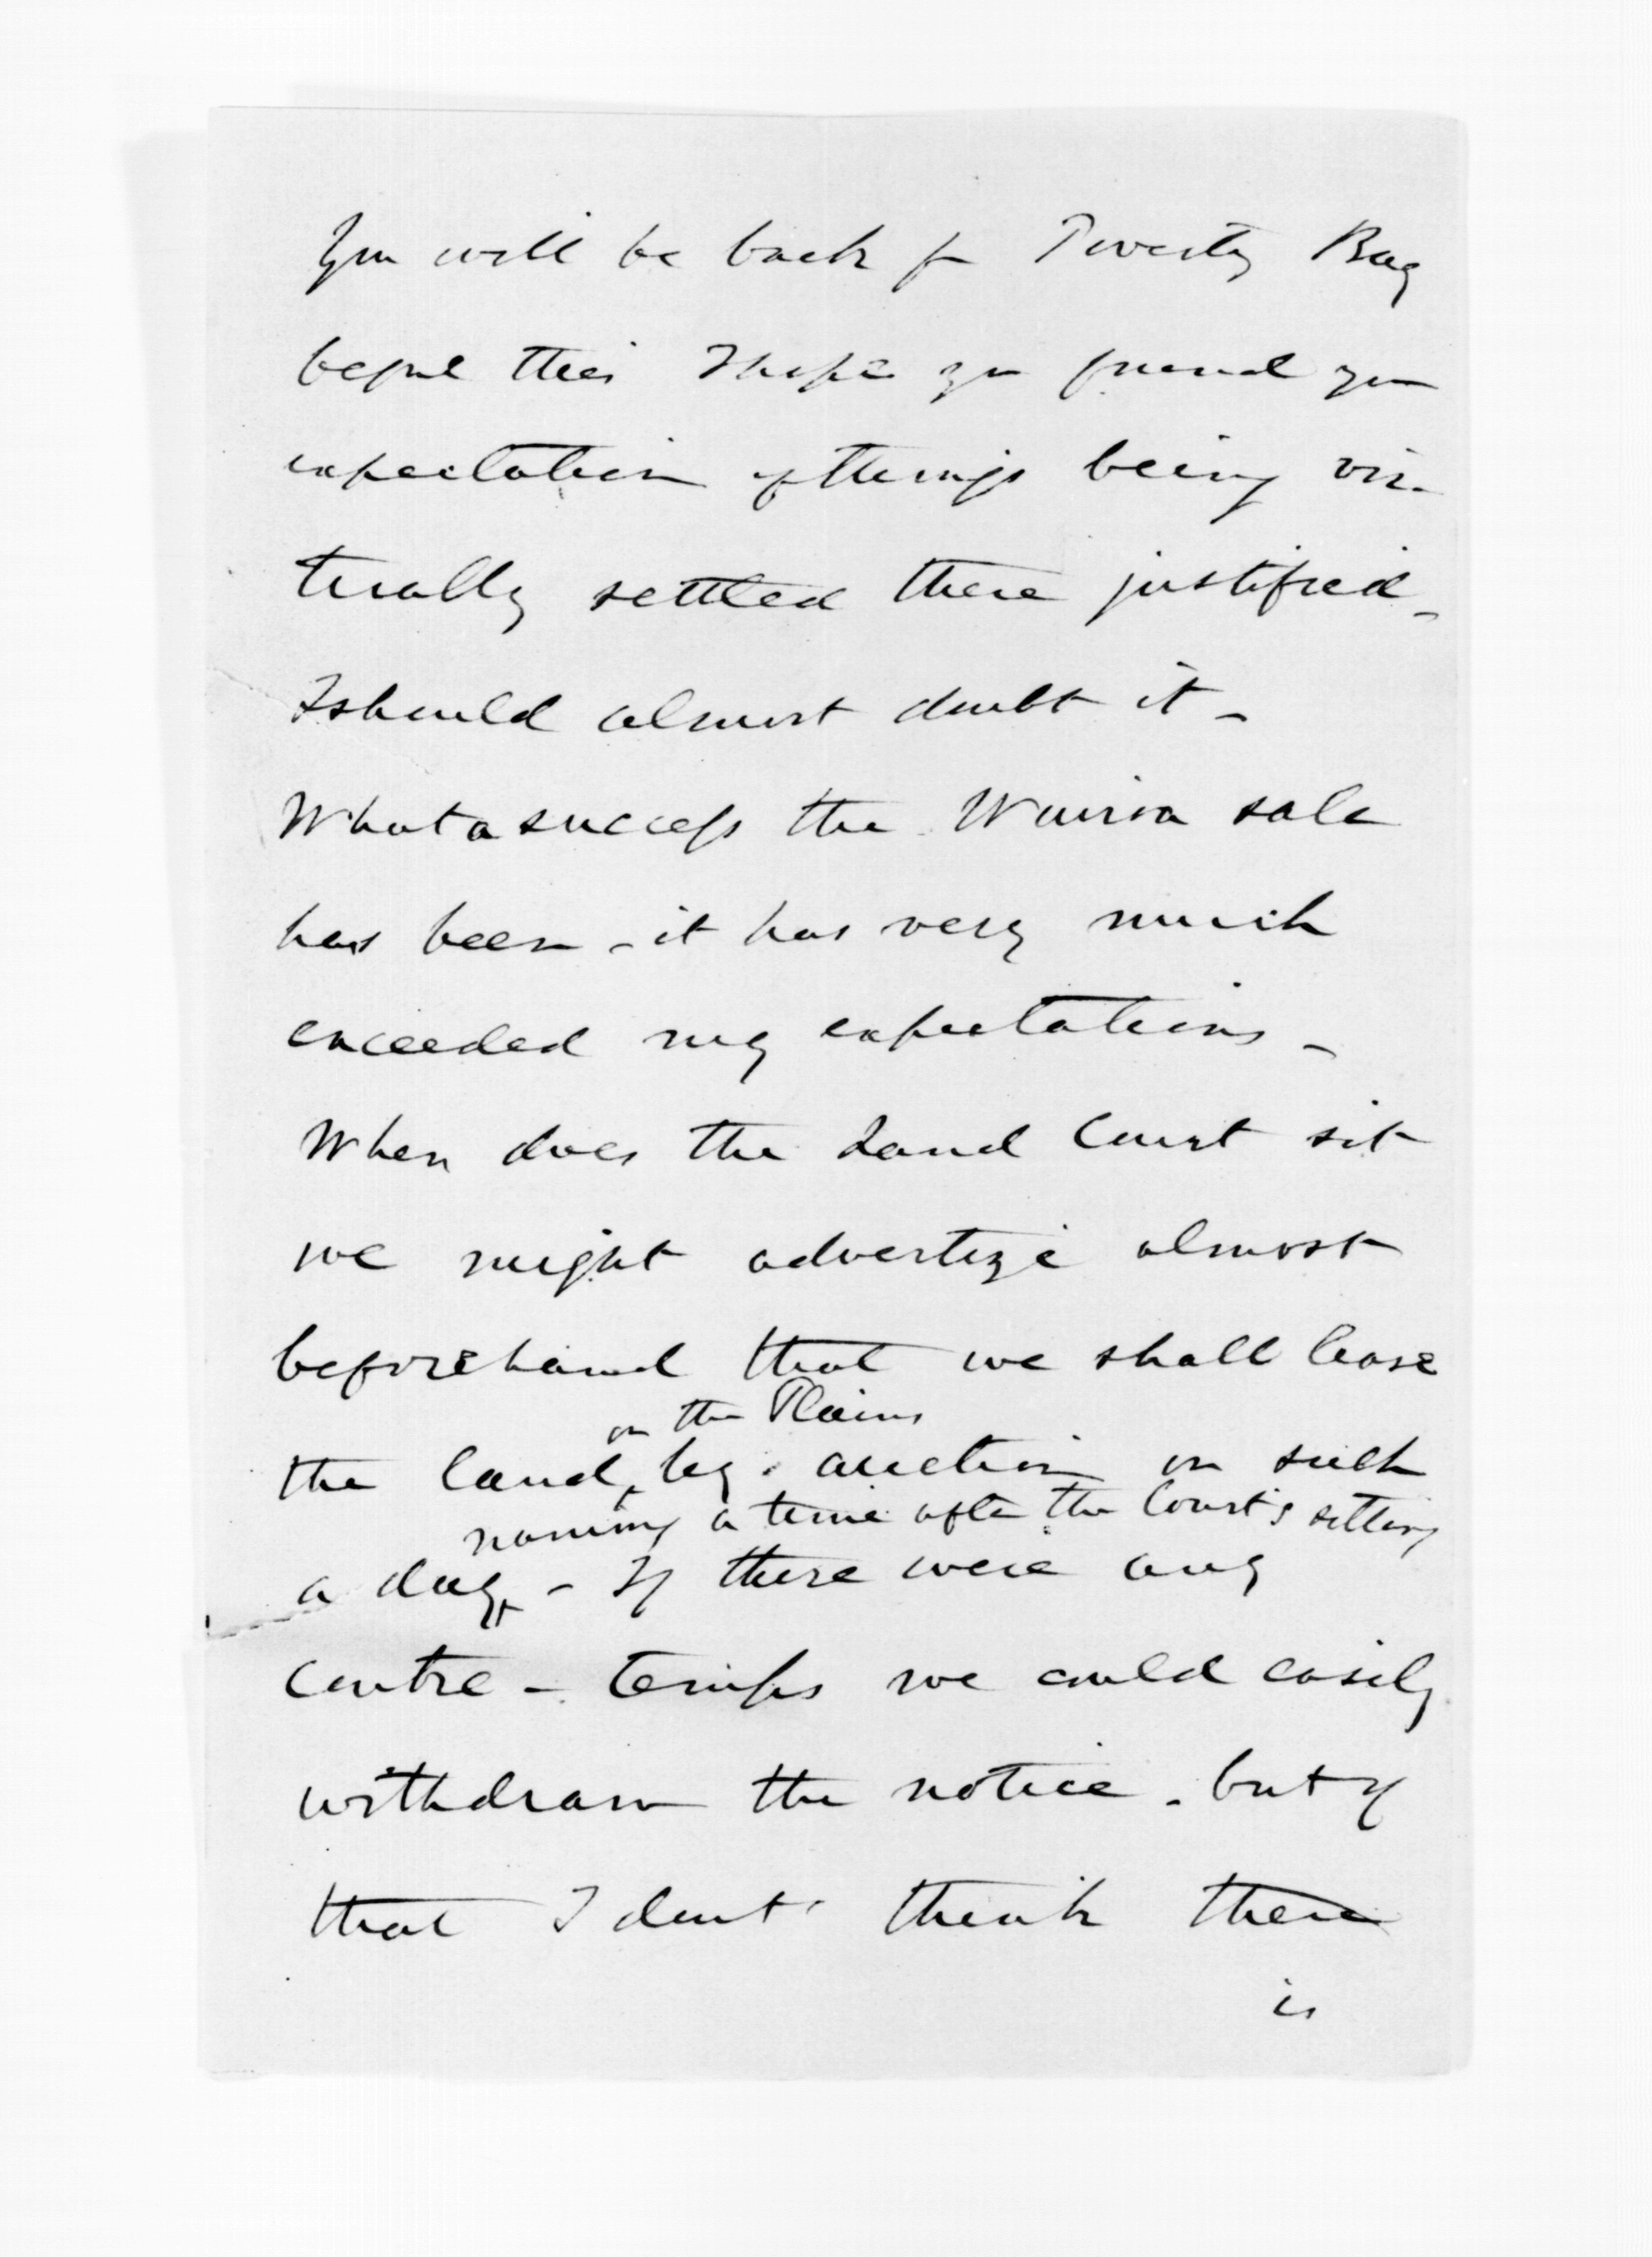 You will be back fr Poverty Bay
before this I hope you found your
expectation of things being vir-
tually settled there justified_
I should almost doubt it_
What a success the Wairoa sale
has been - it has very much
exceeded my expectations_
When does the Land Court sit
we might advertize almost
beforehand that we shall lease
on the Plains
the land, by auction on such
naming a time after the Court's sitting
a day, - If there were any
contre - temps we could easily
withdraw the notice. but of
that I dont think there
is